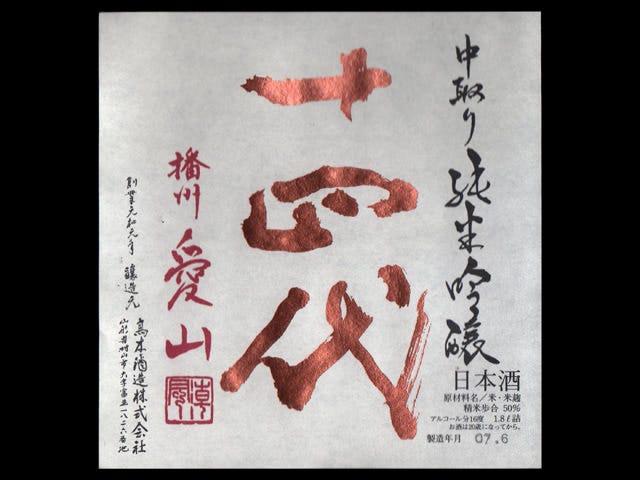 中取り純米吟醸
日本酒
原材料名／米・米麹
精米歩合 50%
アルコール分16度 1.8ℓ詰
お酒は20歳になってから。
製造年月 07.6
十四代
播州 愛山
創業元和元年 醸造元
高木酒造株式会社
山形県村山市大字富並一八二六番地